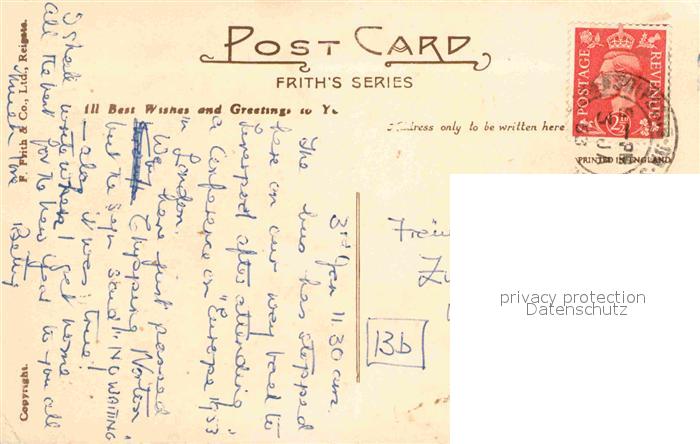 POST CARD
FRITH'S SERIES
All Best Wishes and Greetings to Yo
Address only to be written here
POSTAGE
REVENUE
2½D
PRINTED IN ENGLAND
F. Frith & Co., Ltd., Reigate.
Copyright.
3rd Jan 11.30 a.m.
The bus has stopped
here on our way back to
Liverpool after attending
a Conference on "Europe 1953"
in London.
We have just passed
Chipping Norton
but the sign said "NO WAITING"
- alas it was true!
I shall write when I get home
All the best for the New Year to you all
Much love
Betty
Bb
privacy protection
Datenschutz